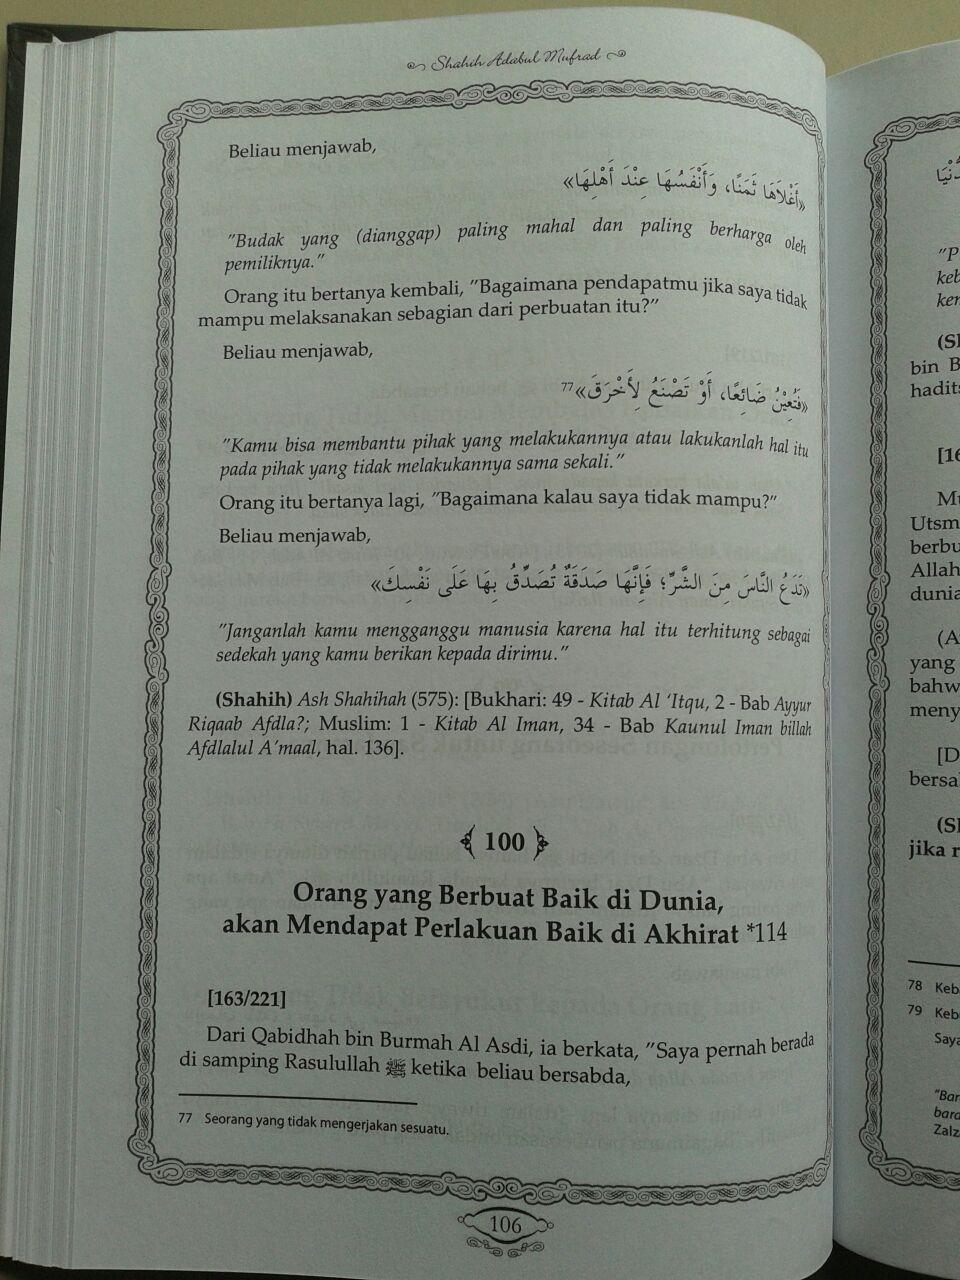 Shahih Adabul Mufrad
Beliau menjawab,
«أَغْلَاهَا ثَمَنًا، وَأَنْفَسُهَا عِنْدَ أَهْلِهَا»
"Budak yang (dianggap) paling mahal dan paling berharga oleh
pemiliknya."
Orang itu bertanya kembali, "Bagaimana pendapatmu jika saya tidak
mampu melaksanakan sebagian dari perbuatan itu?"
Beliau menjawab,
«فَتُعِيْنُ ضَائِعًا، أَوْ تَصْنَعُ لِأَخْرَقَ»77
"Kamu bisa membantu pihak yang melakukannya atau lakukanlah hal itu
pada pihak yang tidak melakukannya sama sekali."
Orang itu bertanya lagi, "Bagaimana kalau saya tidak mampu?"
Beliau menjawab,
«تَدَعُ النَّاسَ مِنَ الشَّرِّ؛ فَإِنَّهَا صَدَقَةٌ تُصَدِّقُ بِهَا عَلَى نَفْسِكَ»
"Janganlah kamu mengganggu manusia karena hal itu terhitung sebagai
sedekah yang kamu berikan kepada dirimu."
(Shahih) Ash Shahihah (575): [Bukhari: 49 - Kitab Al 'Itqu, 2 - Bab Ayyur
Riqaab Afdla?; Muslim: 1 - Kitab Al Iman, 34 - Bab Kaunul Iman billah
Afdlalul A'maal, hal. 136].
100
Orang yang Berbuat Baik di Dunia,
akan Mendapat Perlakuan Baik di Akhirat *114
[163/221]
Dari Qabidhah bin Burmah Al Asdi, ia berkata, "Saya pernah berada
di samping Rasulullah ﷺ ketika beliau bersabda,
77 Seorang yang tidak mengerjakan sesuatu.
106
"P
keb
ker
(Sh
bin B
hadits
[16
Mu
Utsm
berbu
Allah
dunia
(A
yang
bahw
meny
[D
bersal
(Sh
jika r
78 Keba
79 Keb
Saya
"Bar
bara
Zalz